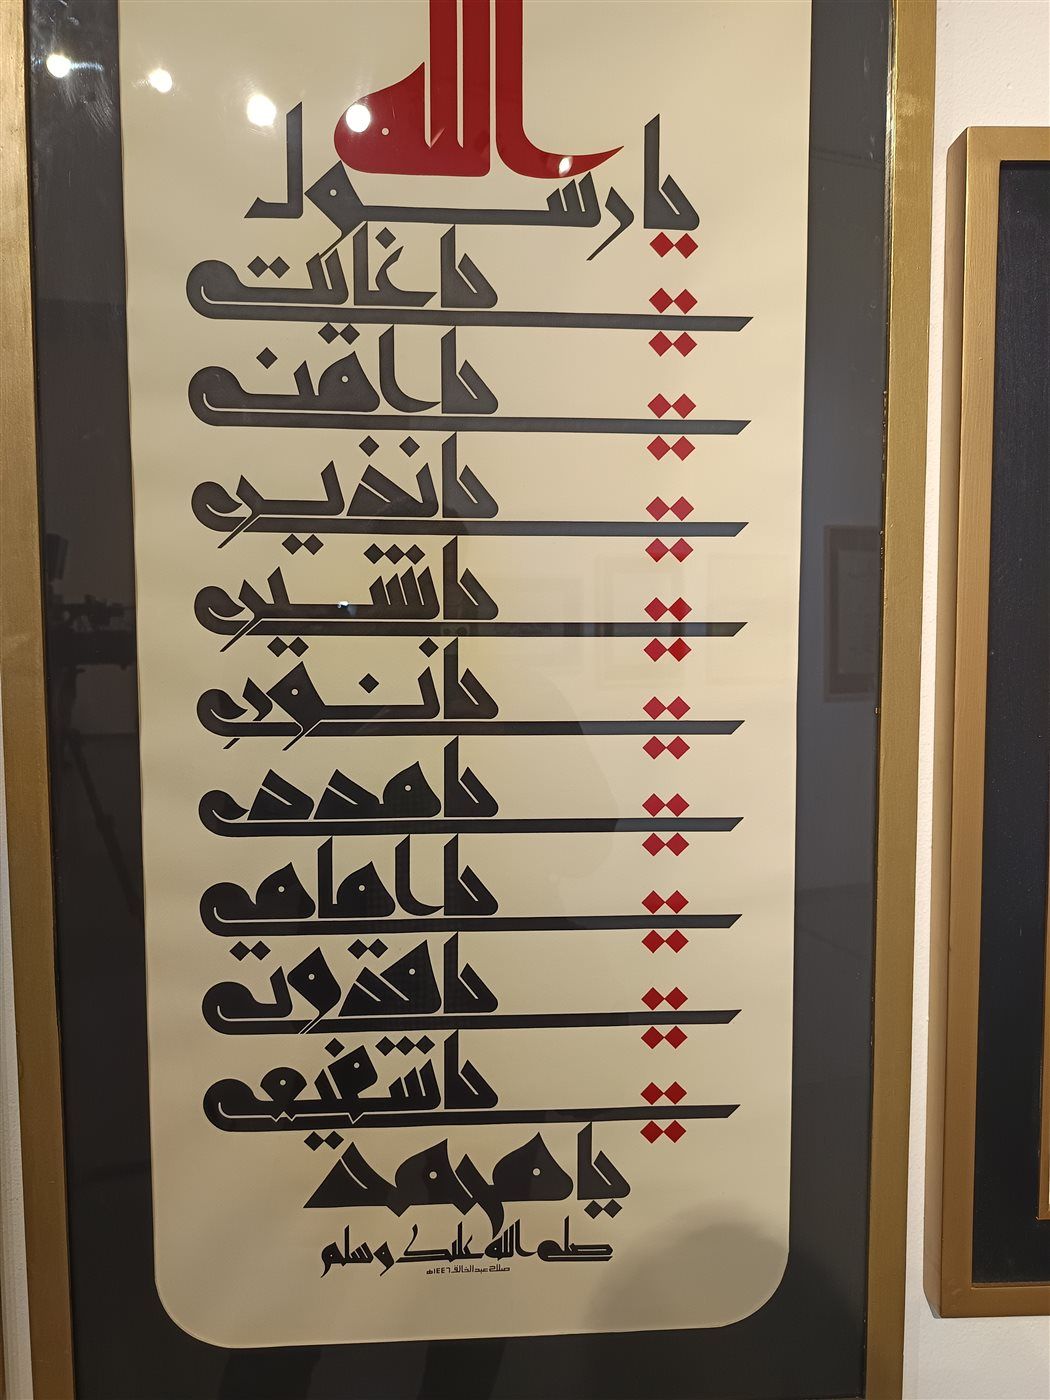 الله
يا رسول
يا غايتي
يا أمني
يا نذيري
يا بشيري
يا نوري
يا مددي
يا إمامي
يا قدوتي
يا شفيعي
يا محمد
صلى الله عليك وسلم
صلاح عبدالخالق ١٤٤٦هـ